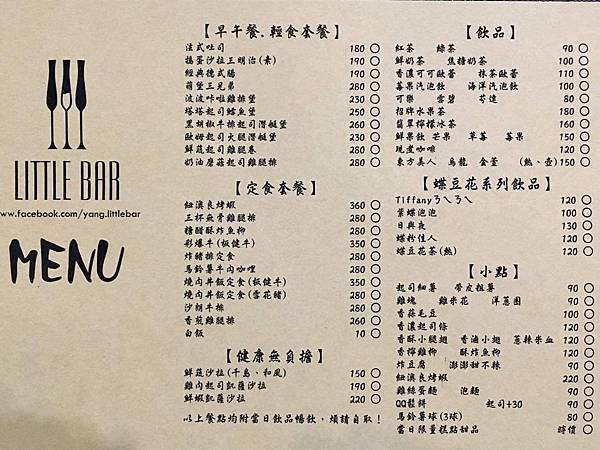 LITTLE BAR
www.facebook.com/yang.littlebar
MENU
【早午餐.輕食套餐】
法式吐司 180 ○
搗蛋沙拉三明治(素) 190 ○
經典德式腸 190 ○
萌堡三兄弟 280 ○
波波咔啦雞排堡 230 ○
塔塔起司鱈魚堡 250 ○
黑胡椒牛排起司潛艇堡 280 ○
歐姆起司火腿潛艇堡 230 ○
鮮蔬起司雞腿卷 280 ○
奶油蘑菇起司雞腿排 280 ○
【定食套餐】
紐澳良烤蝦 360 ○
三杯無骨雞腿排 280 ○
糖醋酥炸魚柳 280 ○
彩爆牛(板健牛) 350 ○
炸豬排定食 280 ○
馬鈴薯牛肉咖哩 280 ○
燒肉丼飯定食(板健牛) 350 ○
燒肉丼飯定食(雪花豬) 280 ○
沙朗牛排 280 ○
香煎雞腿排 280 ○
白飯 10 ○
【健康無負擔】
鮮蔬沙拉(千島、和風) 150 ○
雞肉起司凱薩沙拉 190 ○
鮮蝦凱薩沙拉 220 ○
以上餐點均附當日飲品暢飲，煩請自取！
【飲品】
紅茶 綠茶 90 ○
鮮奶茶 焦糖奶茶 100 ○
香濃可可歐蕾 抹茶歐蕾 110 ○
莓果汽泡飲 海洋汽泡飲 100 ○
可樂 雪碧 芬達 80 ○
招牌水果茶 180 ○
翡翠檸檬冰茶 160 ○
鮮果飲 芒果 草莓 莓果 150 ○
現煮咖啡 120 ○
東方美人 烏龍 金萱 (熱、壺)150 ○
【蝶豆花系列飲品】
Tiffanyㄋㄟㄋㄟ 120 ○
紫蝶泡泡 100 ○
日與夜 130 ○
蝶粉佳人 120 ○
蝶豆花茶(熱) 120 ○
【小點】
起司細薯 帶皮粗薯 90 ○
雞塊 雞米花 洋蔥圈 90 ○
香蒜毛豆 100 ○
香濃起司條 120 ○
香酥小腿翅 香滷小翅 蔥辣米血 120 ○
香檸雞柳 酥炸魚柳 120 ○
炸豆腐 澎澎甜不辣 90 ○
紐澳良烤蝦 220 ○
雞絲蛋麵 泡麵 90 ○
QQ鬆餅 起司+30 90 ○
馬鈴薯球(3球) 80 ○
當日限量糕點甜品 時價 ○